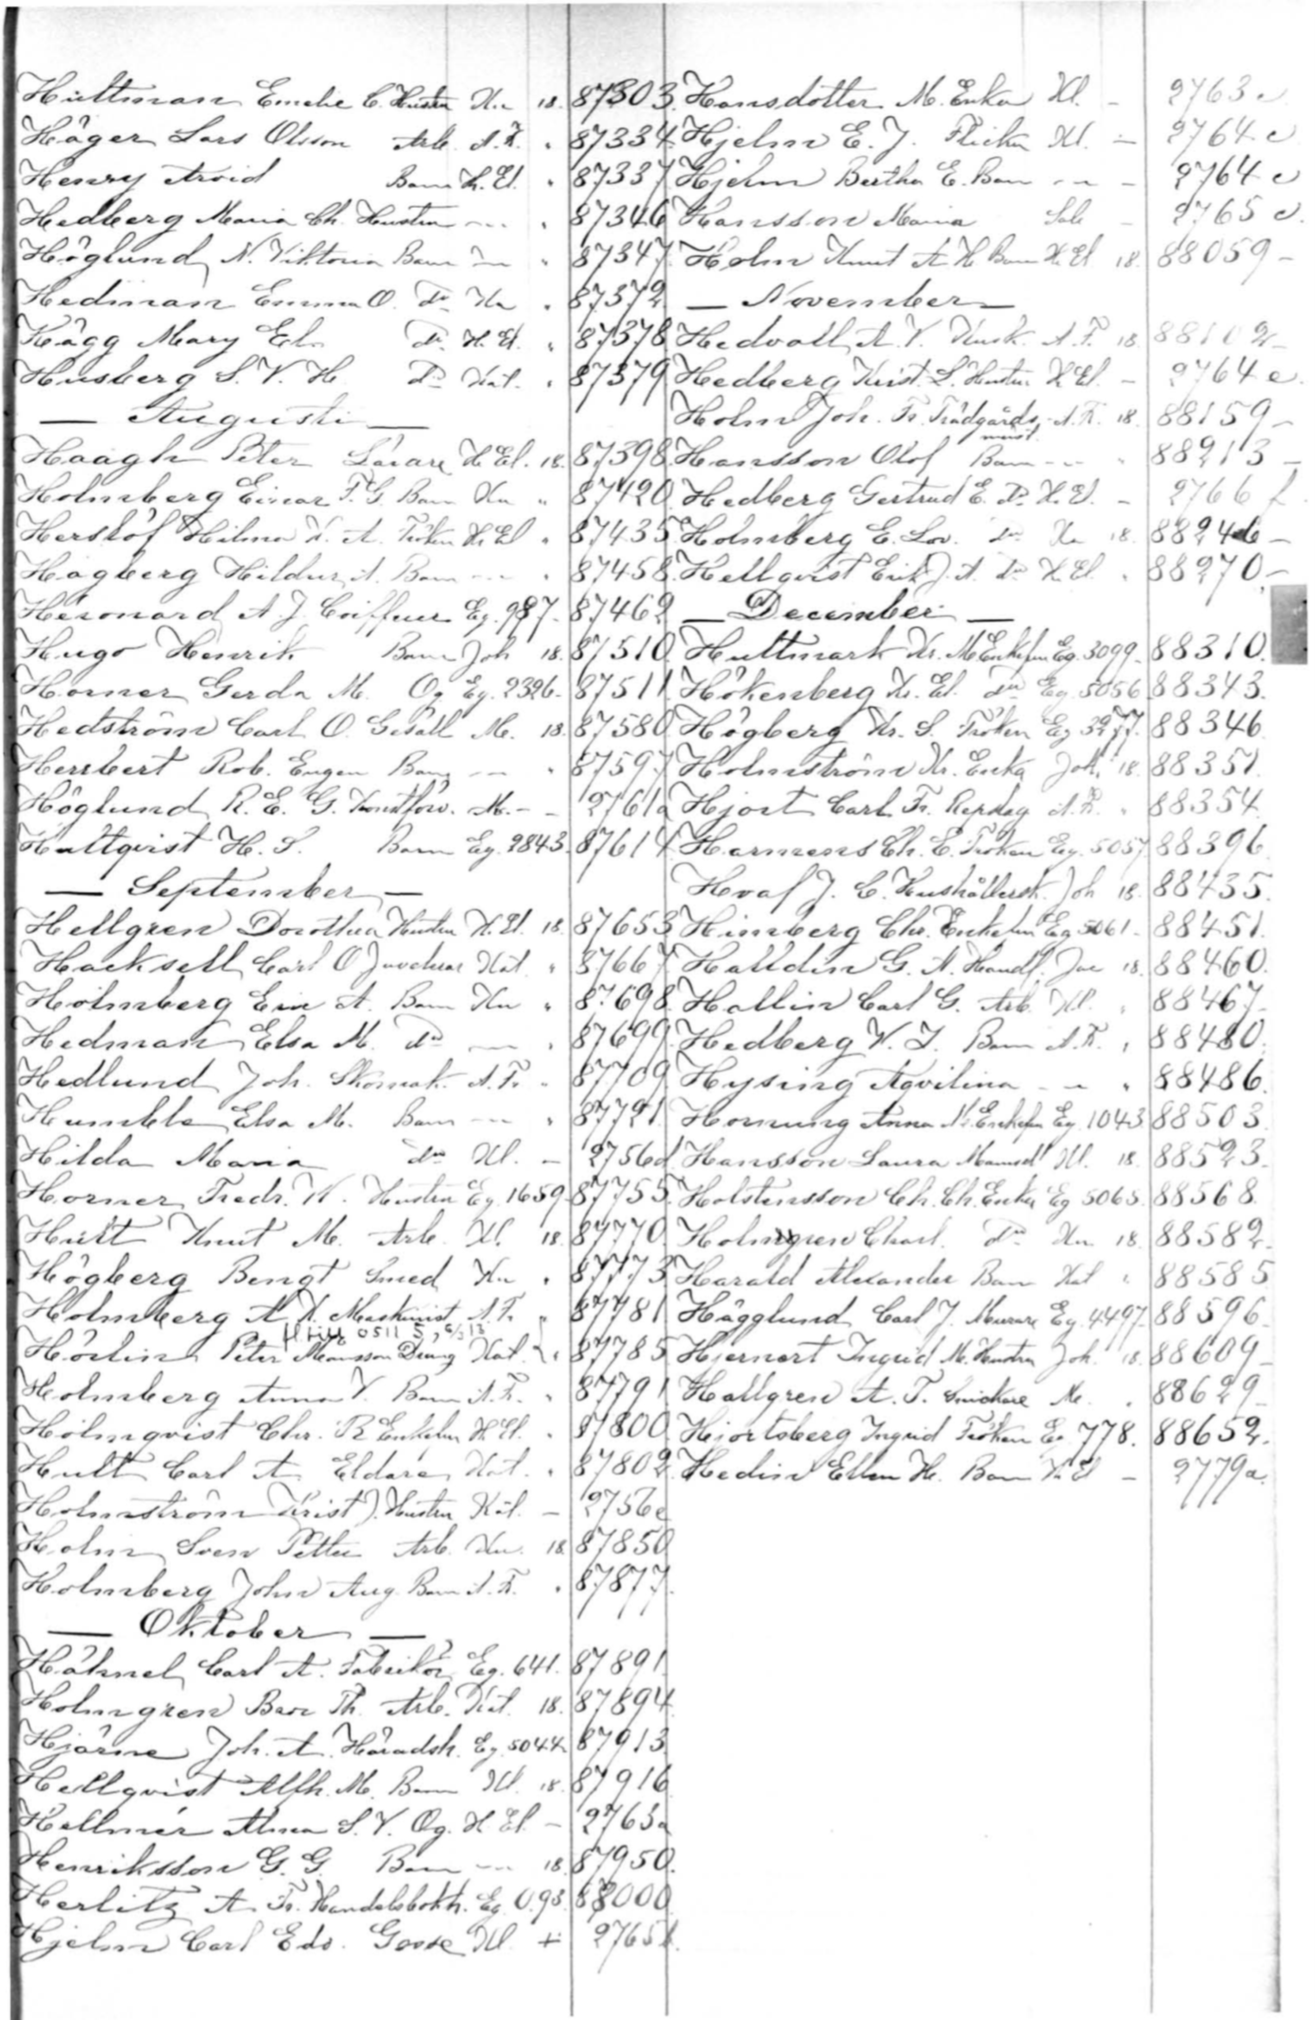 Hultman Emelie C. Hustru Kn 18. 87303.
Häger Lars Olsson Arb. A.F. " 87334
Henry Arvid Barn H. El. " 87337
Hedberg Maria Ch. Hustru --- " 87346
Höglund N. Viktoria Barn --- " 87347
Hedman Emma O. Do Kn " 87372
Hägg Mary El. Do H. El. " 87378
Husberg S. V. H. Do Kat. " 87379
— Augusti —
Haagh Peter Lärare H El. 18. 87398
Holmberg Einar F. G. Barn Kn " 87420
Herslöf Hilma K. A. Fröken H. El " 87435
Hagberg Hildur A. Barn --- " 87458
Heronard A. J. Coiffeur Eg. 987. 87462
Hugo Henrik Barn Joh 18. 87510
Horner Gerda M. Og Eg. 2326. 87511
Hedström Carl O. Gesäll M. 18. 87580
Herrbert Rob. Eugen Barn --- " 87597
Höglund R. E. G. M. - 2761a
Hultqvist H. S. Barn Eg. 2843. 87614
— September —
Hellgren Dorothea Hustru H. El. 18. 87653
Hacksell Carl O Kat " 87667
Holmberg Ein A. Barn Kn " 87698
Hedman Elsa M. Do --- " 87699
Hedlund Joh. Skomak. A. F. " 87709
Humble Elsa M. Barn --- " 87721
Hilda Maria Do Kl. - 2756d
Horner Fredr. W. Hustru Eg. 1659 87755
Hult Knut M. Arb. Kl. 18. 87770
Högberg Bengt Smed Kn " 87773
Holmberg A. K. Maskinist A. F. " 87781
Hörlin Peter Månsson Dräng Kat. " 87785
Holmberg Anna V. Barn A. F. " 87791
Holmqvist Chr. R. Enkefru H. El. " 87800
Hult Carl A. Eldare Kat. " 87802
Holmström Krist J. Hustru Kat. - 2756e
Holm Sven Petter Arb. Kn. 18. 87850
Holmberg John Aug. Barn A. F. " 87877
— Oktober —
Hähnel Carl A. Fabrikör Eg. 641. 87891
Holmgren Th. Arb. Kat. 18. 87894
Hjärne Joh. A. Häradsh. Eg. 5044 87913
Hellqvist Alfh. M. Barn Kl. 18. 87916
Hellmér Alma S. V. Og. H El. - 2763a
Henriksson G. G. Barn --- 18. 87950.
Herlitz A. Fr. Handelsbokh. Eg. 093. 88000
Hjelm Carl Edv. Gosse Kl. + 2765b.
Hansdotter M. Enka Kl. - 2763c
Hjelm E. J. Flicka Kl. - 2764c
Hjelm Bertha E. Barn --- - 2764c
Hansson Maria - 2765c.
Holm Knut A H Barn H. El 18. 88059 -
— November —
Hedvall A. V. Kusk. A. F. 18. 88102 -
Hedberg Krist. L. Hustru H. El. - 2764e.
Holm Joh. Fr. Trädgårds- A. F. 18. 88159 -
mäst.
Hansson Olof Barn --- " 88213 -
Hedberg Gertrud E. Do H. El. - 2766f.
Holmberg E. Lov. Do Kn 18. 88246 -
Hellqvist Erik J. A. Do H. El. " 88270. -
— December —
Hultmark Kr. M Enkefru Eg. 3099. 88310.
Hökenberg K. El. Do Eg. 5056 88343.
Högberg Kr. S. Fröken Eg 3277. 88346.
Holmström Kr. Enka Joh. 18. 88351.
Hjort Carl Fr. Repslag A. F. " 88354.
Harmens Ch. E. Fröken Eg. 5057 88396.
Hvaf J. C. Hushållersk. Joh 18. 88435.
Himberg Chr. Enkefru Eg 5061 - 88451.
Halldin G. A. Handl. Jac 18. 88460.
Hallin Carl G. Arb. Kl. " 88467
Hedberg V. T. Barn A. F. " 88480.
Hysing Aqvilina --- " 88486.
Hornung Anna M. Enkefru Eg. 1043. 88503.
Hansson Laura Mamsell Kl. 18. 88523.
Holstensson Ch. Ch. Enka Eg 5065. 88568.
Holmgren Charl. Do Kn 18. 88582.
Harald Alexander Barn Kat " 88585
Hägglund Carl J. Murare Eg. 4497. 88596
Hjernert Ingrid M. Hustru Joh. 18. 88609 -
Hallgren A. T. Snickare M. " 88629 -
Hjortsberg Ingrid Fröken Eg. 778. 88652.
Hedin Ellen H. Barn H. El - 2779a.